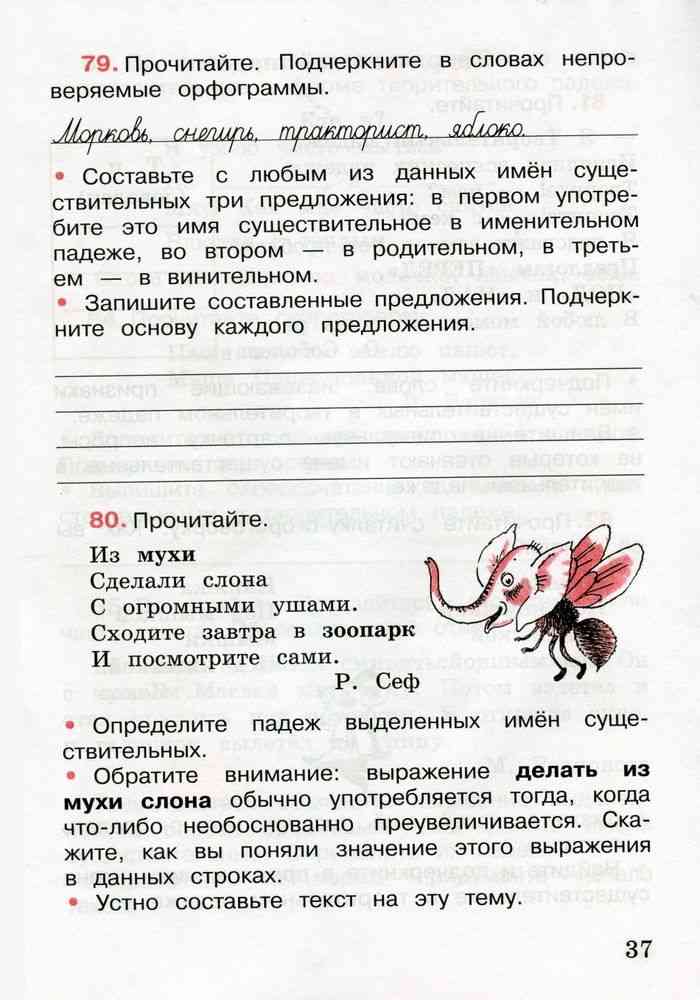 79. Прочитайте. Подчеркните в словах непро-
веряемые орфограммы.
Морковь, снегирь, тракторист, яблоко.
• Составьте с любым из данных имён суще-
ствительных три предложения: в первом употре-
бите это имя существительное в именительном
падеже, во втором — в родительном, в треть-
ем — в винительном.
• Запишите составленные предложения. Подчерк-
ните основу каждого предложения.
80. Прочитайте.
Из мухи
Сделали слона
С огромными ушами.
Сходите завтра в зоопарк
И посмотрите сами.
Р. Сеф
• Определите падеж выделенных имён суще-
ствительных.
• Обратите внимание: выражение делать из
мухи слона обычно употребляется тогда, когда
что-либо необоснованно преувеличивается. Ска-
жите, как вы поняли значение этого выражения
в данных строках.
• Устно составьте текст на эту тему.
37